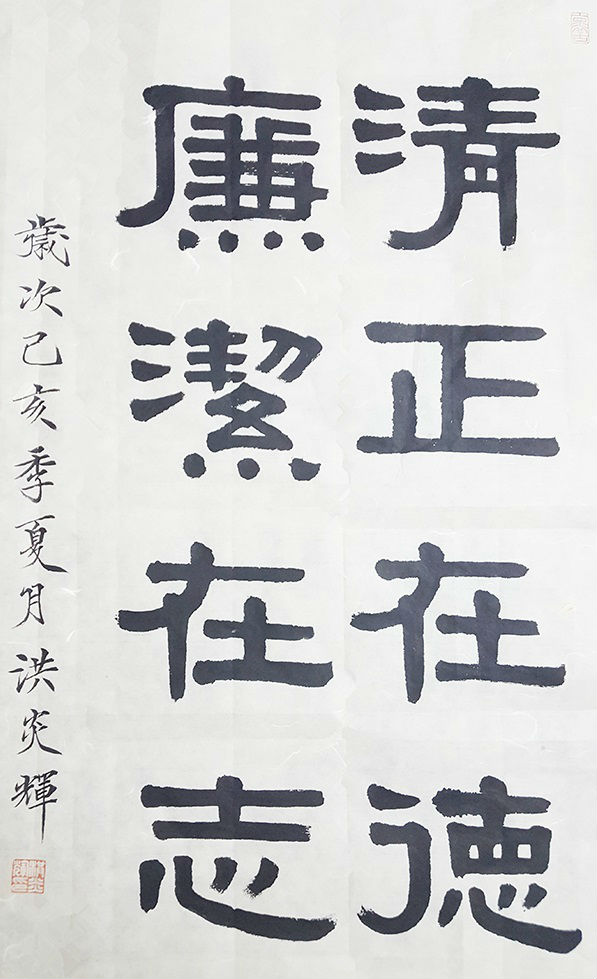 清正在德
廉潔在志
歲次己亥季夏月洪炎輝